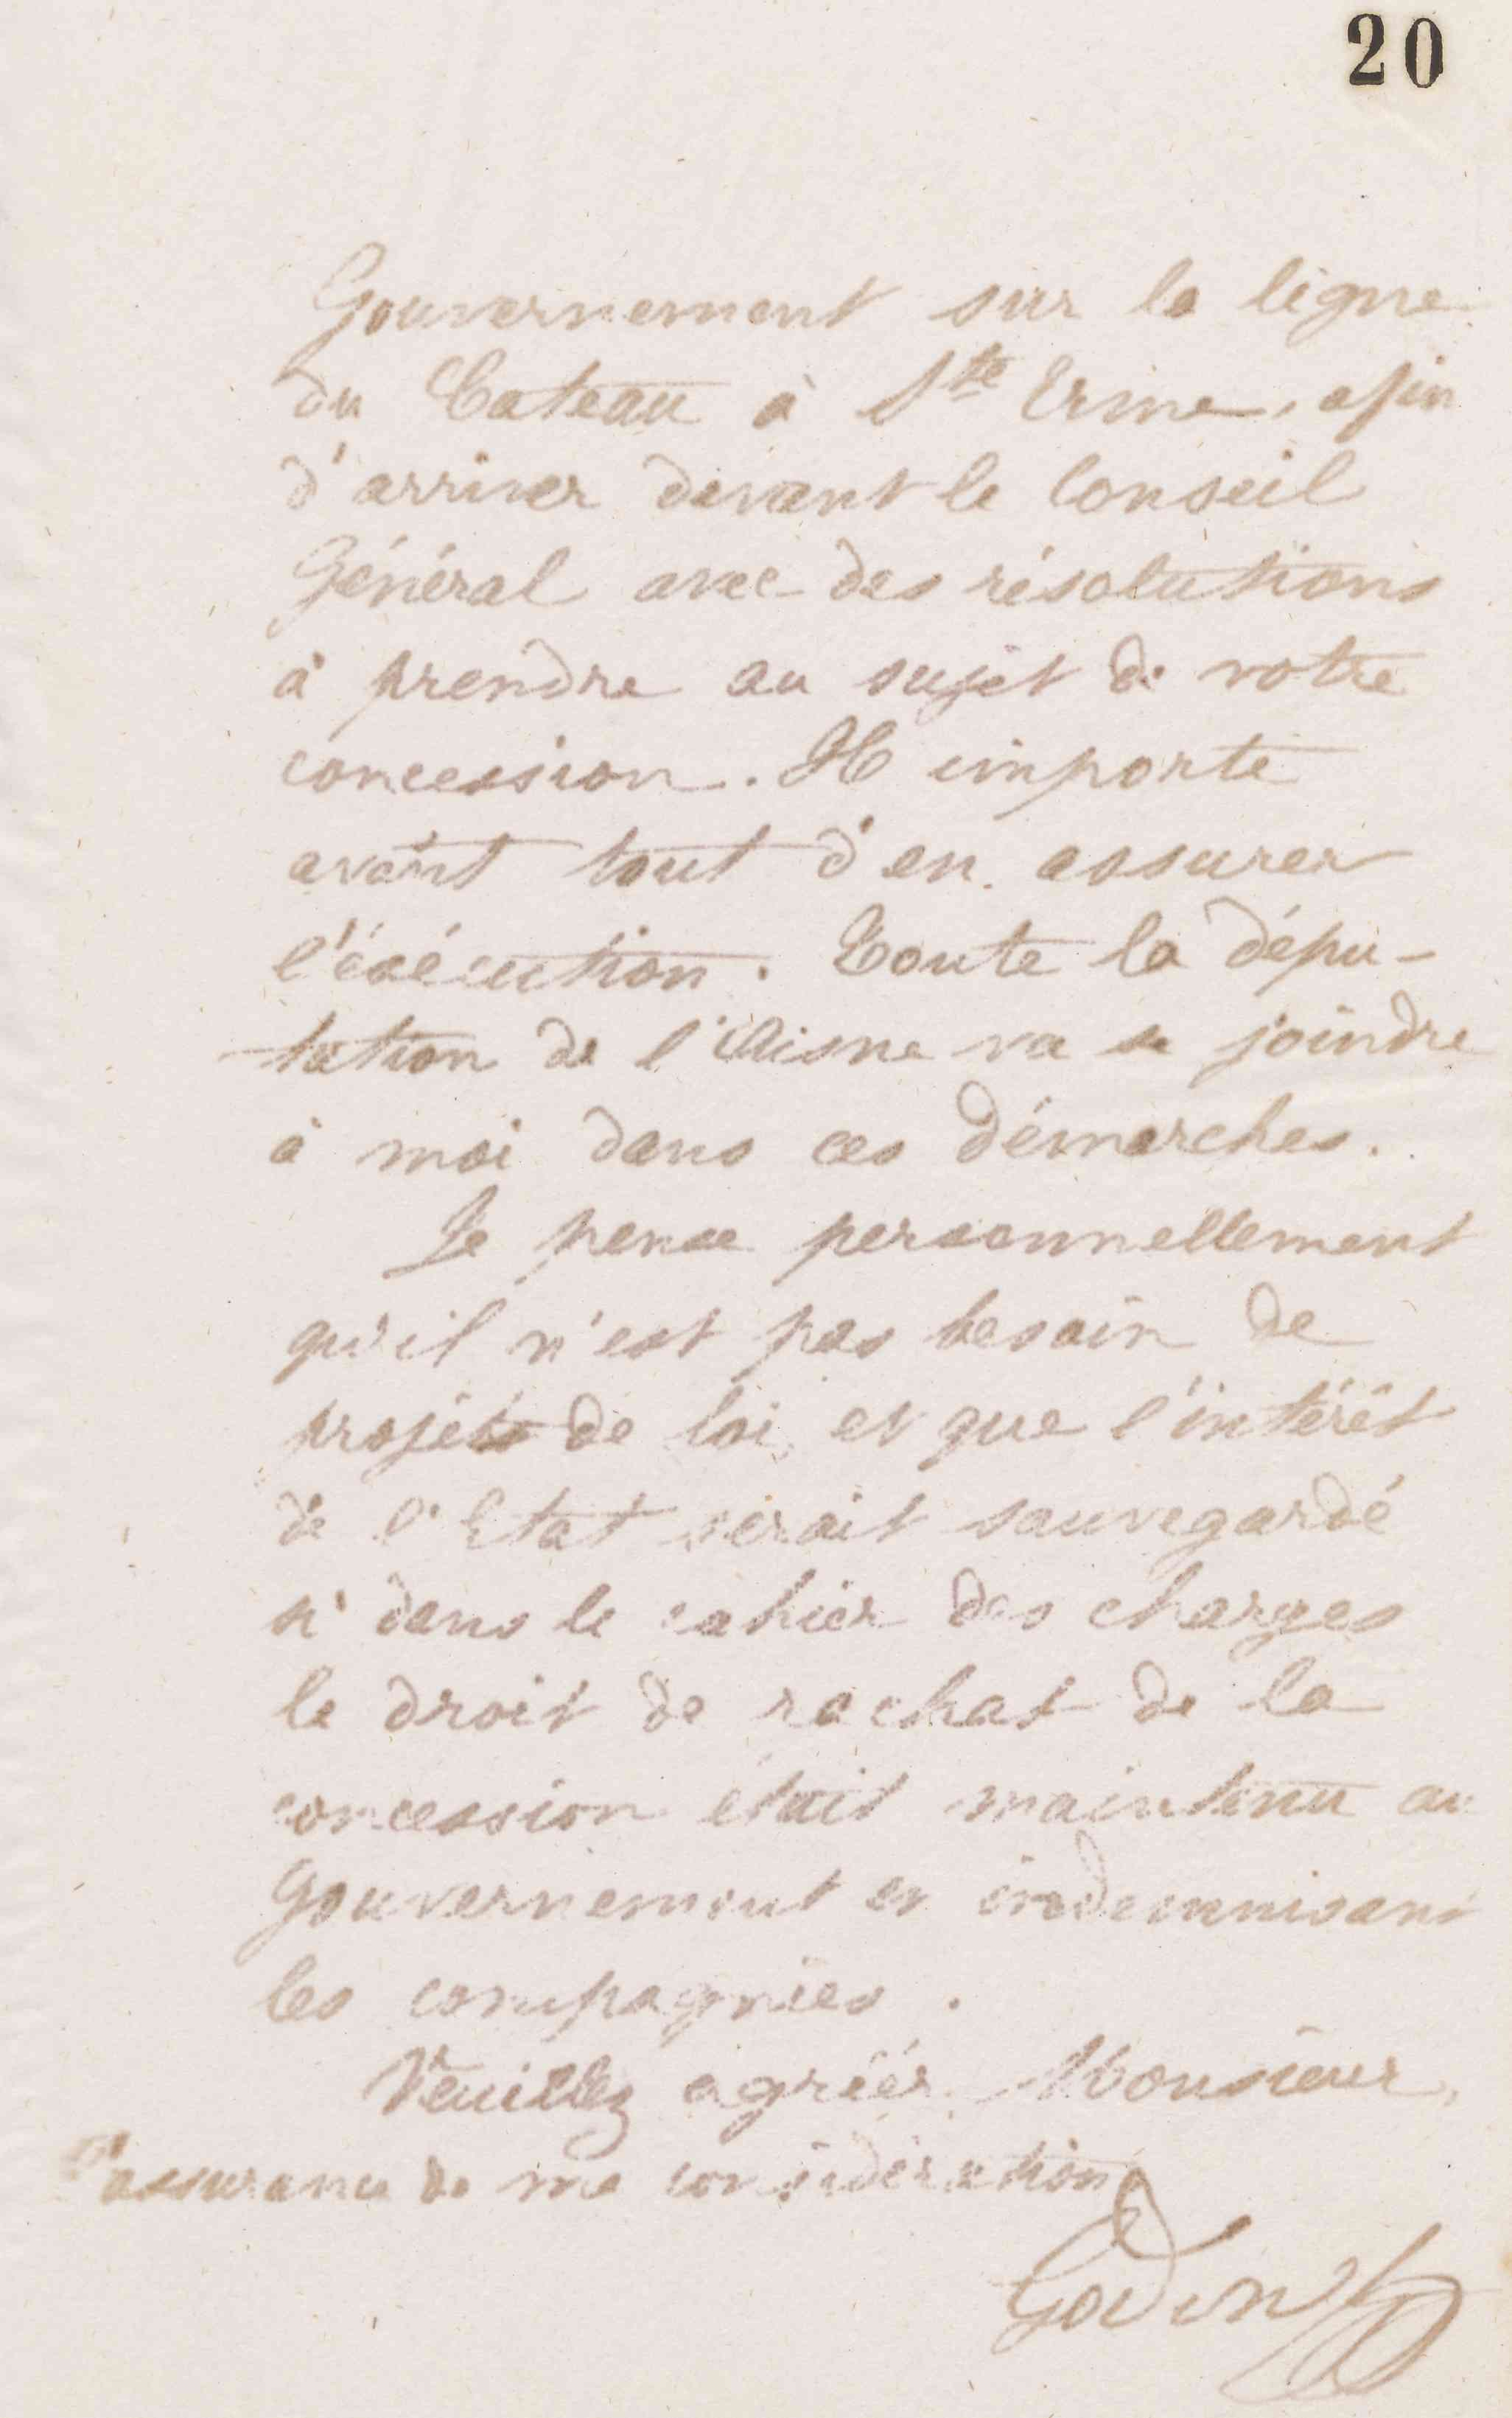 20
Gouvernement sur la ligne
du Cateau à Ste Erme, afin
d'arriver devant le Conseil
Général avec des résolutions
à prendre au sujet de votre
concession. Il importe
avant tout d'en assurer
l'éxécution. Toute la dépu-
tation de l'Aisne va se joindre
à moi dans ces démarches.
Je pense personnellement
qu'il n'est pas besoin de
projets de loi, et que l'intérêt
de l'Etat serait sauvegardé
si dans le cahier des charges
le droit de rachat de la
concession était maintenu au
Gouvernement en indemnisant
les compagnies.
Veuillez agréer, Monsieur,
l'assurance de ma considération
Godin